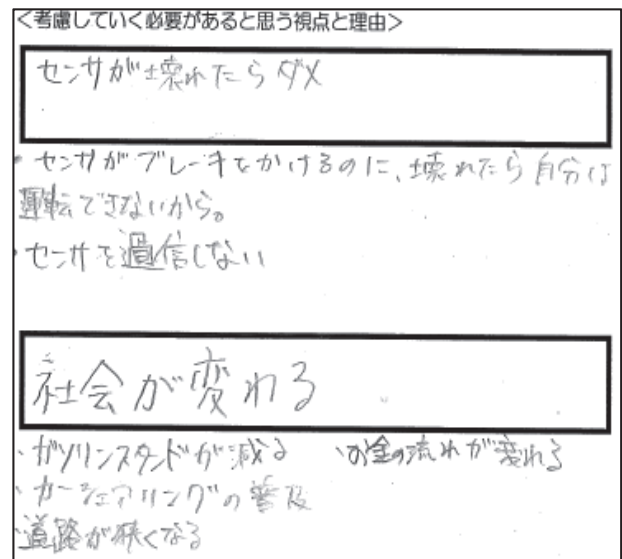 <考慮していく必要があると思う視点と理由>
センサが壊れたらダメ
・センサがブレーキをかけるのに、壊れたら自分は
運転できないから。
・センサを過信しない
社会が変わる
・ガソリンスタンドが減る ・お金の流れが変わる
・カーシェアリングの普及
・道路が狭くなる